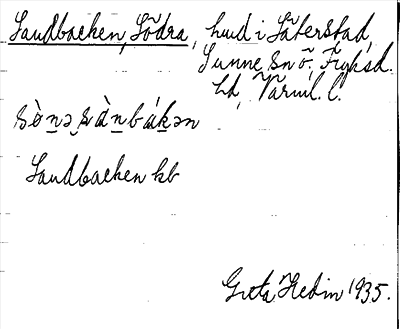 Sandbacken, Södra, hmd i Säterstad,
Sunne sn ö. Fryksd.
hd, Värml. l.
sø̀nə sànbákən
Sandbacken kb
Greta Hedin 1935.